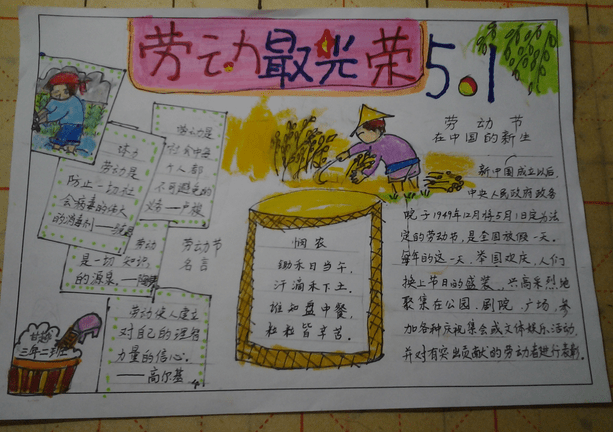 劳动最光荣
5.1
劳动是
社会中每
个人都
不可避免的
义务——卢梭
体力
劳动是
防止一切社
会病毒的伟大
的消毒剂——
劳动
是一切知识
的源泉——
劳动节
名言
劳动使人建立
对自己的理智
力量的信心。
——高尔基
三年二班
悯农
锄禾日当午,
汗滴禾下土。
谁知盘中餐,
粒粒皆辛苦。
劳动节
在中国的新生
新中国成立以后,
中央人民政府政务
院于1949年12月将5月1日定为法
定的劳动节,是全国放假一天。
每年的这一天,举国欢庆,人们
换上节日的盛装,兴高采烈地
聚集在公园、剧院、广场,参
加各种庆祝集会或文体娱乐活动,
并对有突出贡献的劳动者进行表彰。